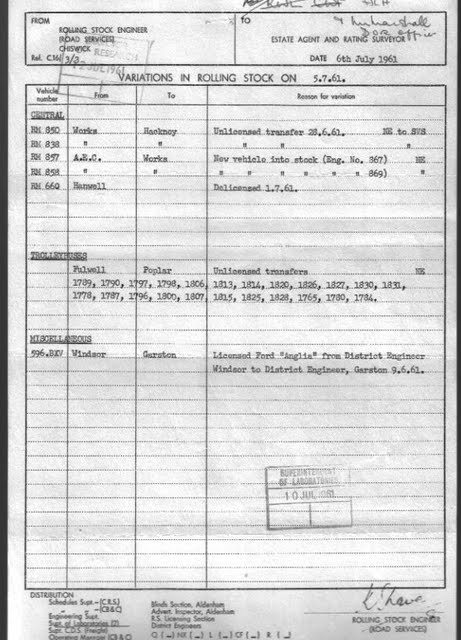 FROM
ROLLING STOCK ENGINEER
(ROAD SERVICES)
CHISWICK
Ref. C16/3/3
RESEARCH
12 JUL 1961
to
ESTATE AGENT AND RATING SURVEYOR
DATE 6th July 1961
VARIATIONS IN ROLLING STOCK ON 5.7.61.
Vehicle number From To Reason for variation
CENTRAL
RM 850 Works Hackney Unlicensed transfer 28.6.61. NE to SVS
RM 838 " " " " "
RM 857 A.E.C. Works New vehicle into stock (Eng. No. 867) NE
RM 858 " " " " " " " 869) "
RM 660 Hanwell Delicensed 1.7.61.
TROLLEYBUSES
Fulwell Poplar Unlicensed transfers NE
1789, 1790, 1797, 1798, 1806, 1813, 1814, 1820, 1826, 1827, 1830, 1831,
1778, 1787, 1796, 1800, 1807, 1815, 1825, 1828, 1765, 1780, 1784.
MISCELLANEOUS
596.BXV Windsor Garston Licensed Ford "Anglia" from District Engineer
Windsor to District Engineer, Garston 9.6.61.
SUPERINTENDENT
OF LABORATORIES
10 JUL 1961
DISTRIBUTION
Schedules Supt.-(C.R.S.)
" -(CB&C)
Engineering Supt.
Supt. of Laboratories (2)
Supt. C.D.S. (Freight)
Operating Manager (CB&C)
Blinds Section, Aldenham
Advert. Inspector, Aldenham
R.S. Licensing Section
District Engineers
ROLLING STOCK ENGINEER
(ROAD SERVICES)